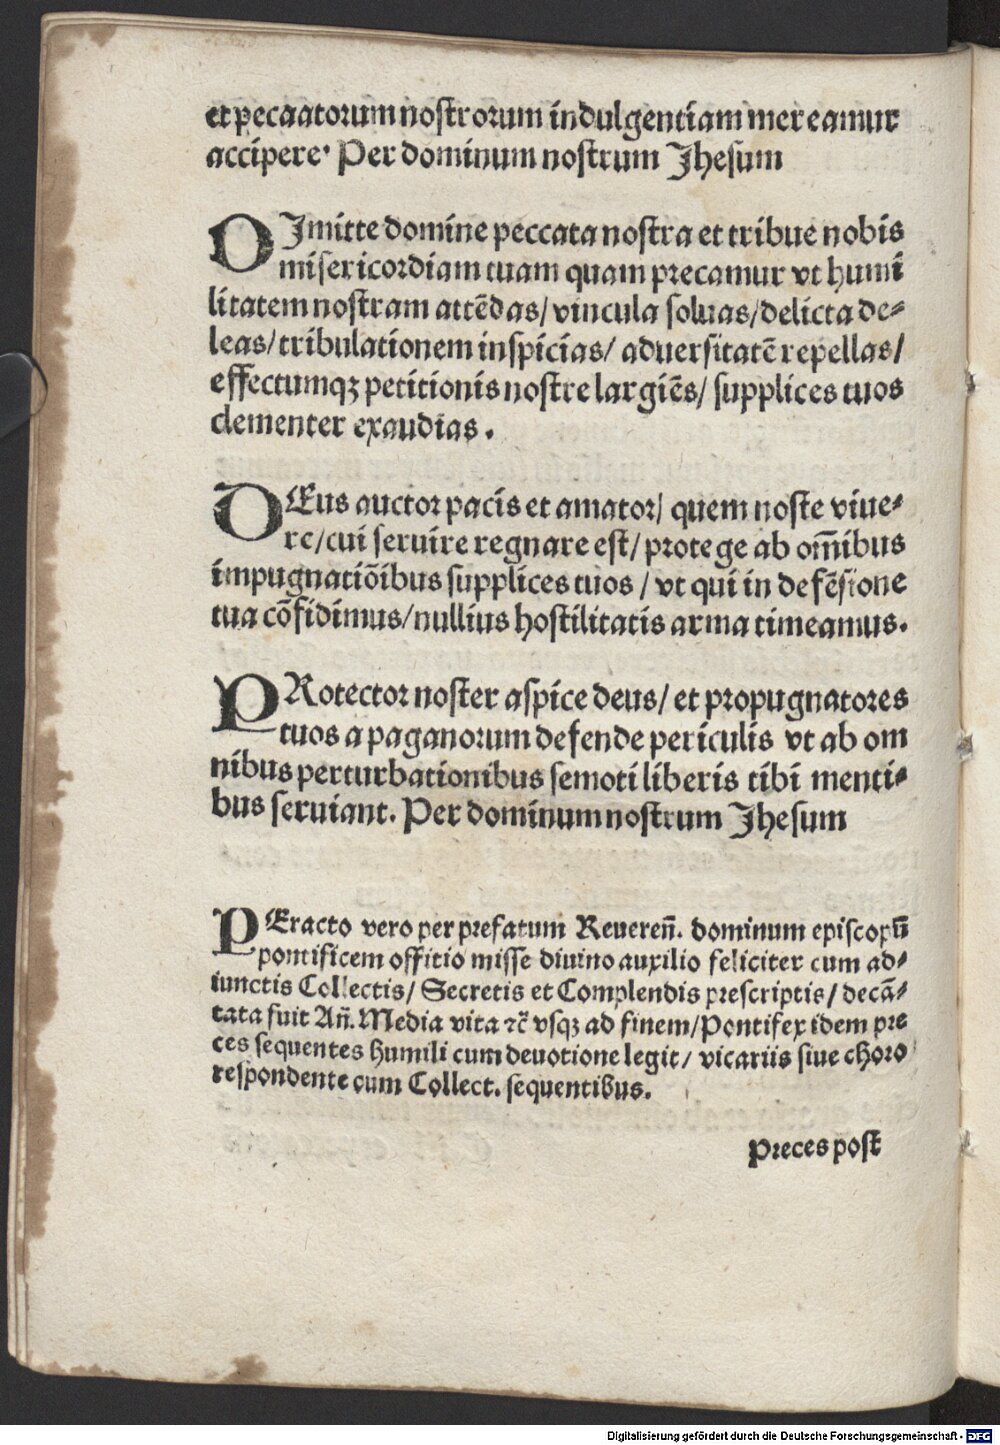 et pecaatorum nostrorum indulgentiam mereamur
accipere. Per dominum nostrum Jhesum
OJmitte domine peccata nostra et tribue nobis
misericordiam tuam quam precamur vt humi
litatem nostram attēdas/ vincula soluas/ delicta de-
leas/ tribulationem inspicias/ aduersitatē repellas/
effectumqꝫ petitionis nostre largiēs/ supplices tuos
clementer exaudias.
DEus auctor pacis et amator/ quem noste viue-
re/ cui seruire regnare est/ protege ab om̄ibus
impugnatiōibus supplices tuos / vt qui in defēsione
tua cōfidimus/ nullius hostilitatis arma timeamus.
PRotector noster aspice deus/ et propugnatores
tuos a paganorum defende periculis vt ab om
nibus perturbationibus semoti liberis tibi menti-
bus seruiant. Per dominum nostrum Jhesum
PEracto vero per prefatum Reueren̄. dominum episcopū
pontificem offitio misse diuino auxilio feliciter cum ad-
iunctis Collectis/ Secretis et Complendis prescriptis/ decā-
tata fuit An̄. Media vita ⁊c̄ vsqꝫ ad finem/ Pontifex idem pre
ces sequentes humili cum deuotione legit/ vicariis siue choro
respondente cum Collect. sequentibus.
Preces post
Digitalisierung gefördert durch die Deutsche Forschungsgemeinschaft - DFG